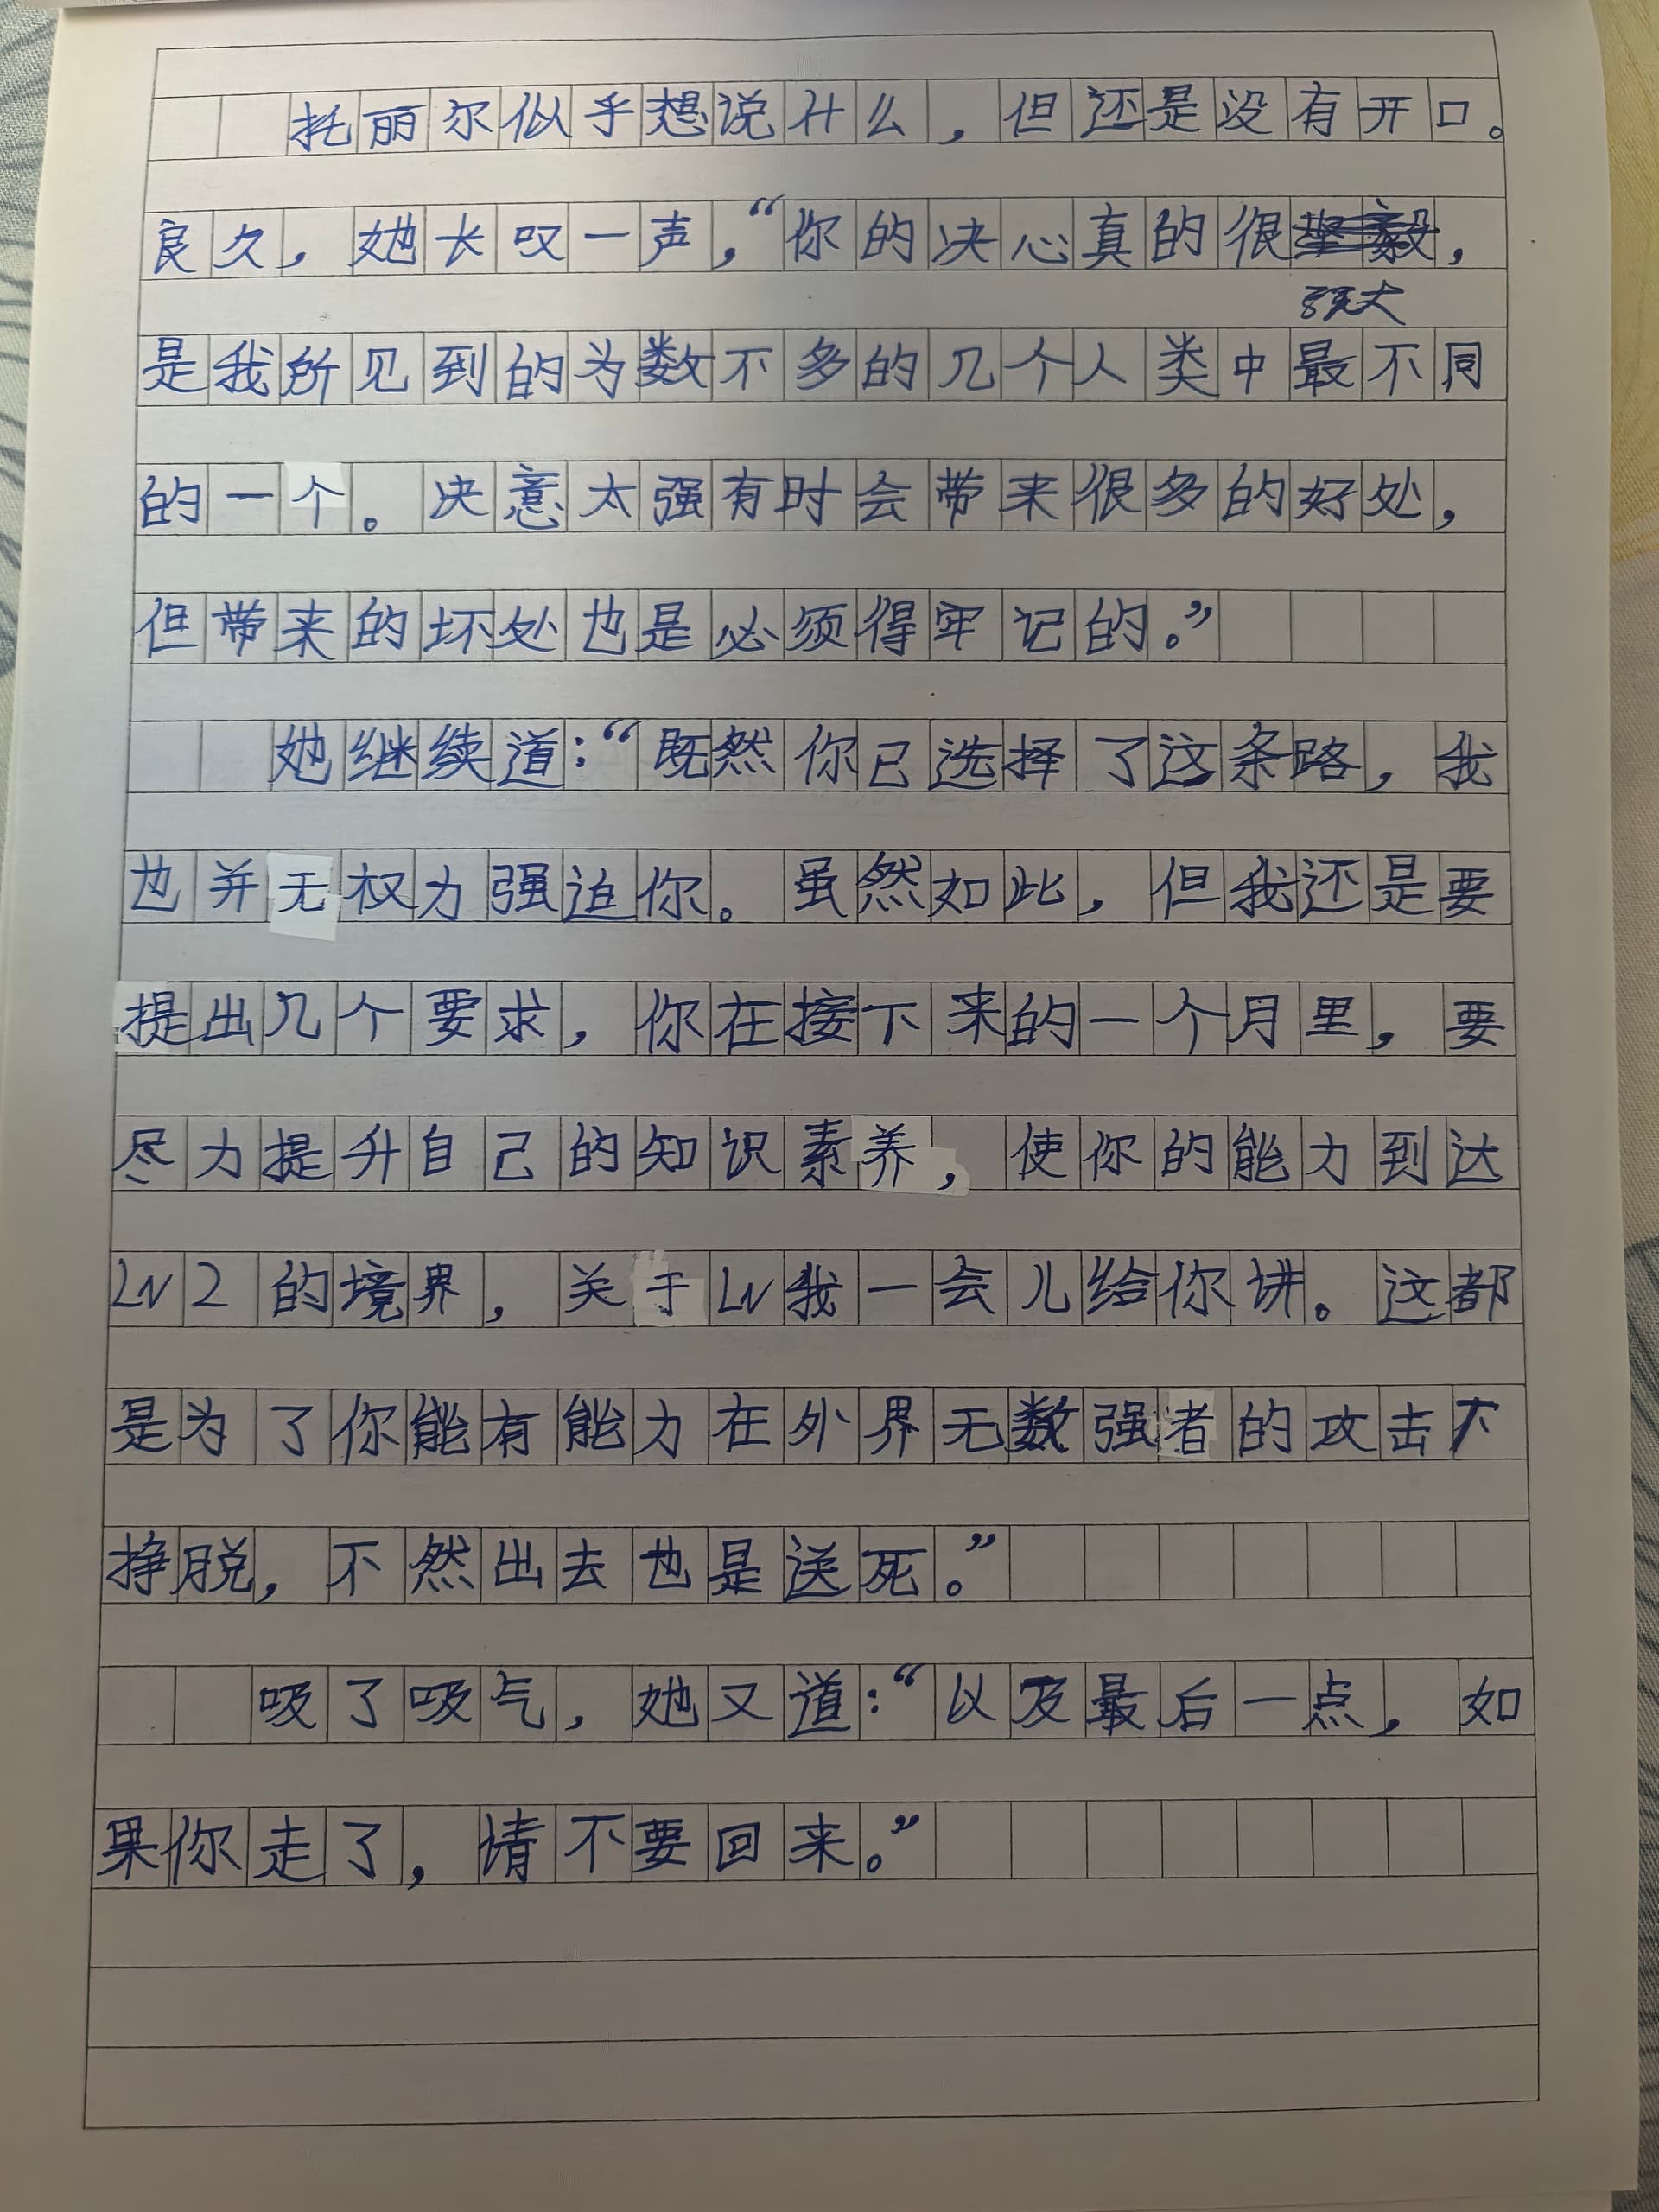 托丽尔似乎想说什么，但还是没有开口。
良久，她长叹一声，“你的决心真的很坚毅，
强大
是我所见到的为数不多的几个人类中最不同
的一个。决意太强有时会带来很多的好处，
但带来的坏处也是必须得牢记的。”
她继续道：“既然你已选择了这条路，我
也并无权力强迫你。虽然如此，但我还是要
提出几个要求，你在接下来的一个月里，要
尽力提升自己的知识素养，使你的能力到达
LV2的境界，关于LV我一会儿给你讲。这都
是为了你能有能力在外界无数强者的攻击下
挣脱，不然出去也是送死。”
吸了吸气，她又道：“以及最后一点，如
果你走了，请不要回来。”